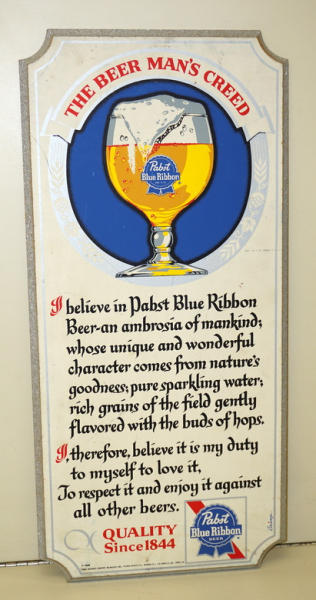 THE BEER MAN'S CREED
Pabst
Blue Ribbon
I believe in Pabst Blue Ribbon
Beer-an ambrosia of mankind;
whose unique and wonderful
character comes from nature's
goodness; pure sparkling water;
rich grains of the field gently
flavored with the buds of hops.
I, therefore, believe it is my duty
to myself to love it,
To respect it and enjoy it against
all other beers.
QUALITY
Since 1844
Pabst
Blue Ribbon
BEER